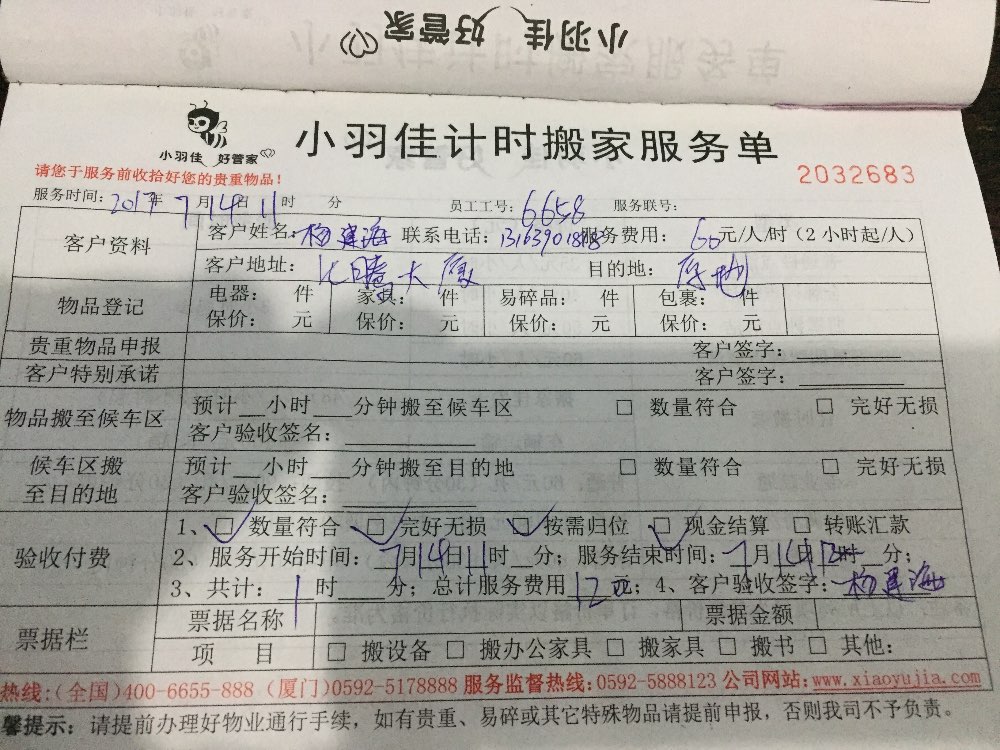 小羽佳 好管家
小羽佳 好管家
小羽佳计时搬家服务单
请您于服务前收拾好您的贵重物品！
2032683
服务时间：2017年 7月14日11时 分 员工工号：6658 服务联号：
客户资料 客户姓名：杨建海 联系电话： 服务费用：60元/人/时（2小时起/人）
客户地址：腾大厦 目的地：原地
物品登记 电器： 件 家具： 件 易碎品： 件 包裹： 件
保价： 元 保价： 元 保价： 元 保价： 元
贵重物品申报 客户签字：
客户特别承诺 客户签字：
物品搬至候车区 预计__小时___分钟搬至候车区 □ 数量符合 □ 完好无损
客户验收签名：
候车区搬至目的地 预计__小时___分钟搬至目的地 □ 数量符合 □ 完好无损
客户验收签名：
验收付费 1、☑ 数量符合 ☑ 完好无损 ☑ 按需归位 ☑ 现金结算 □ 转账汇款
2、服务开始时间：7月14日11时__分；服务结束时间：7月14日12时__分；
3、共计：1时___分；总计服务费用12元；4、客户验收签字：杨建海
票据栏 票据名称 票据金额
项 目 □ 搬设备 □ 搬办公家具 □ 搬家具 □ 搬书 □ 其他：
热线：（全国）400-6655-888（厦门）0592-5178888 服务监督热线：0592-5888123 公司网站：www.xiaoyujia.com
馨提示：请提前办理好物业通行手续，如有贵重、易碎或其它特殊物品请提前申报，否则我司不予负责。